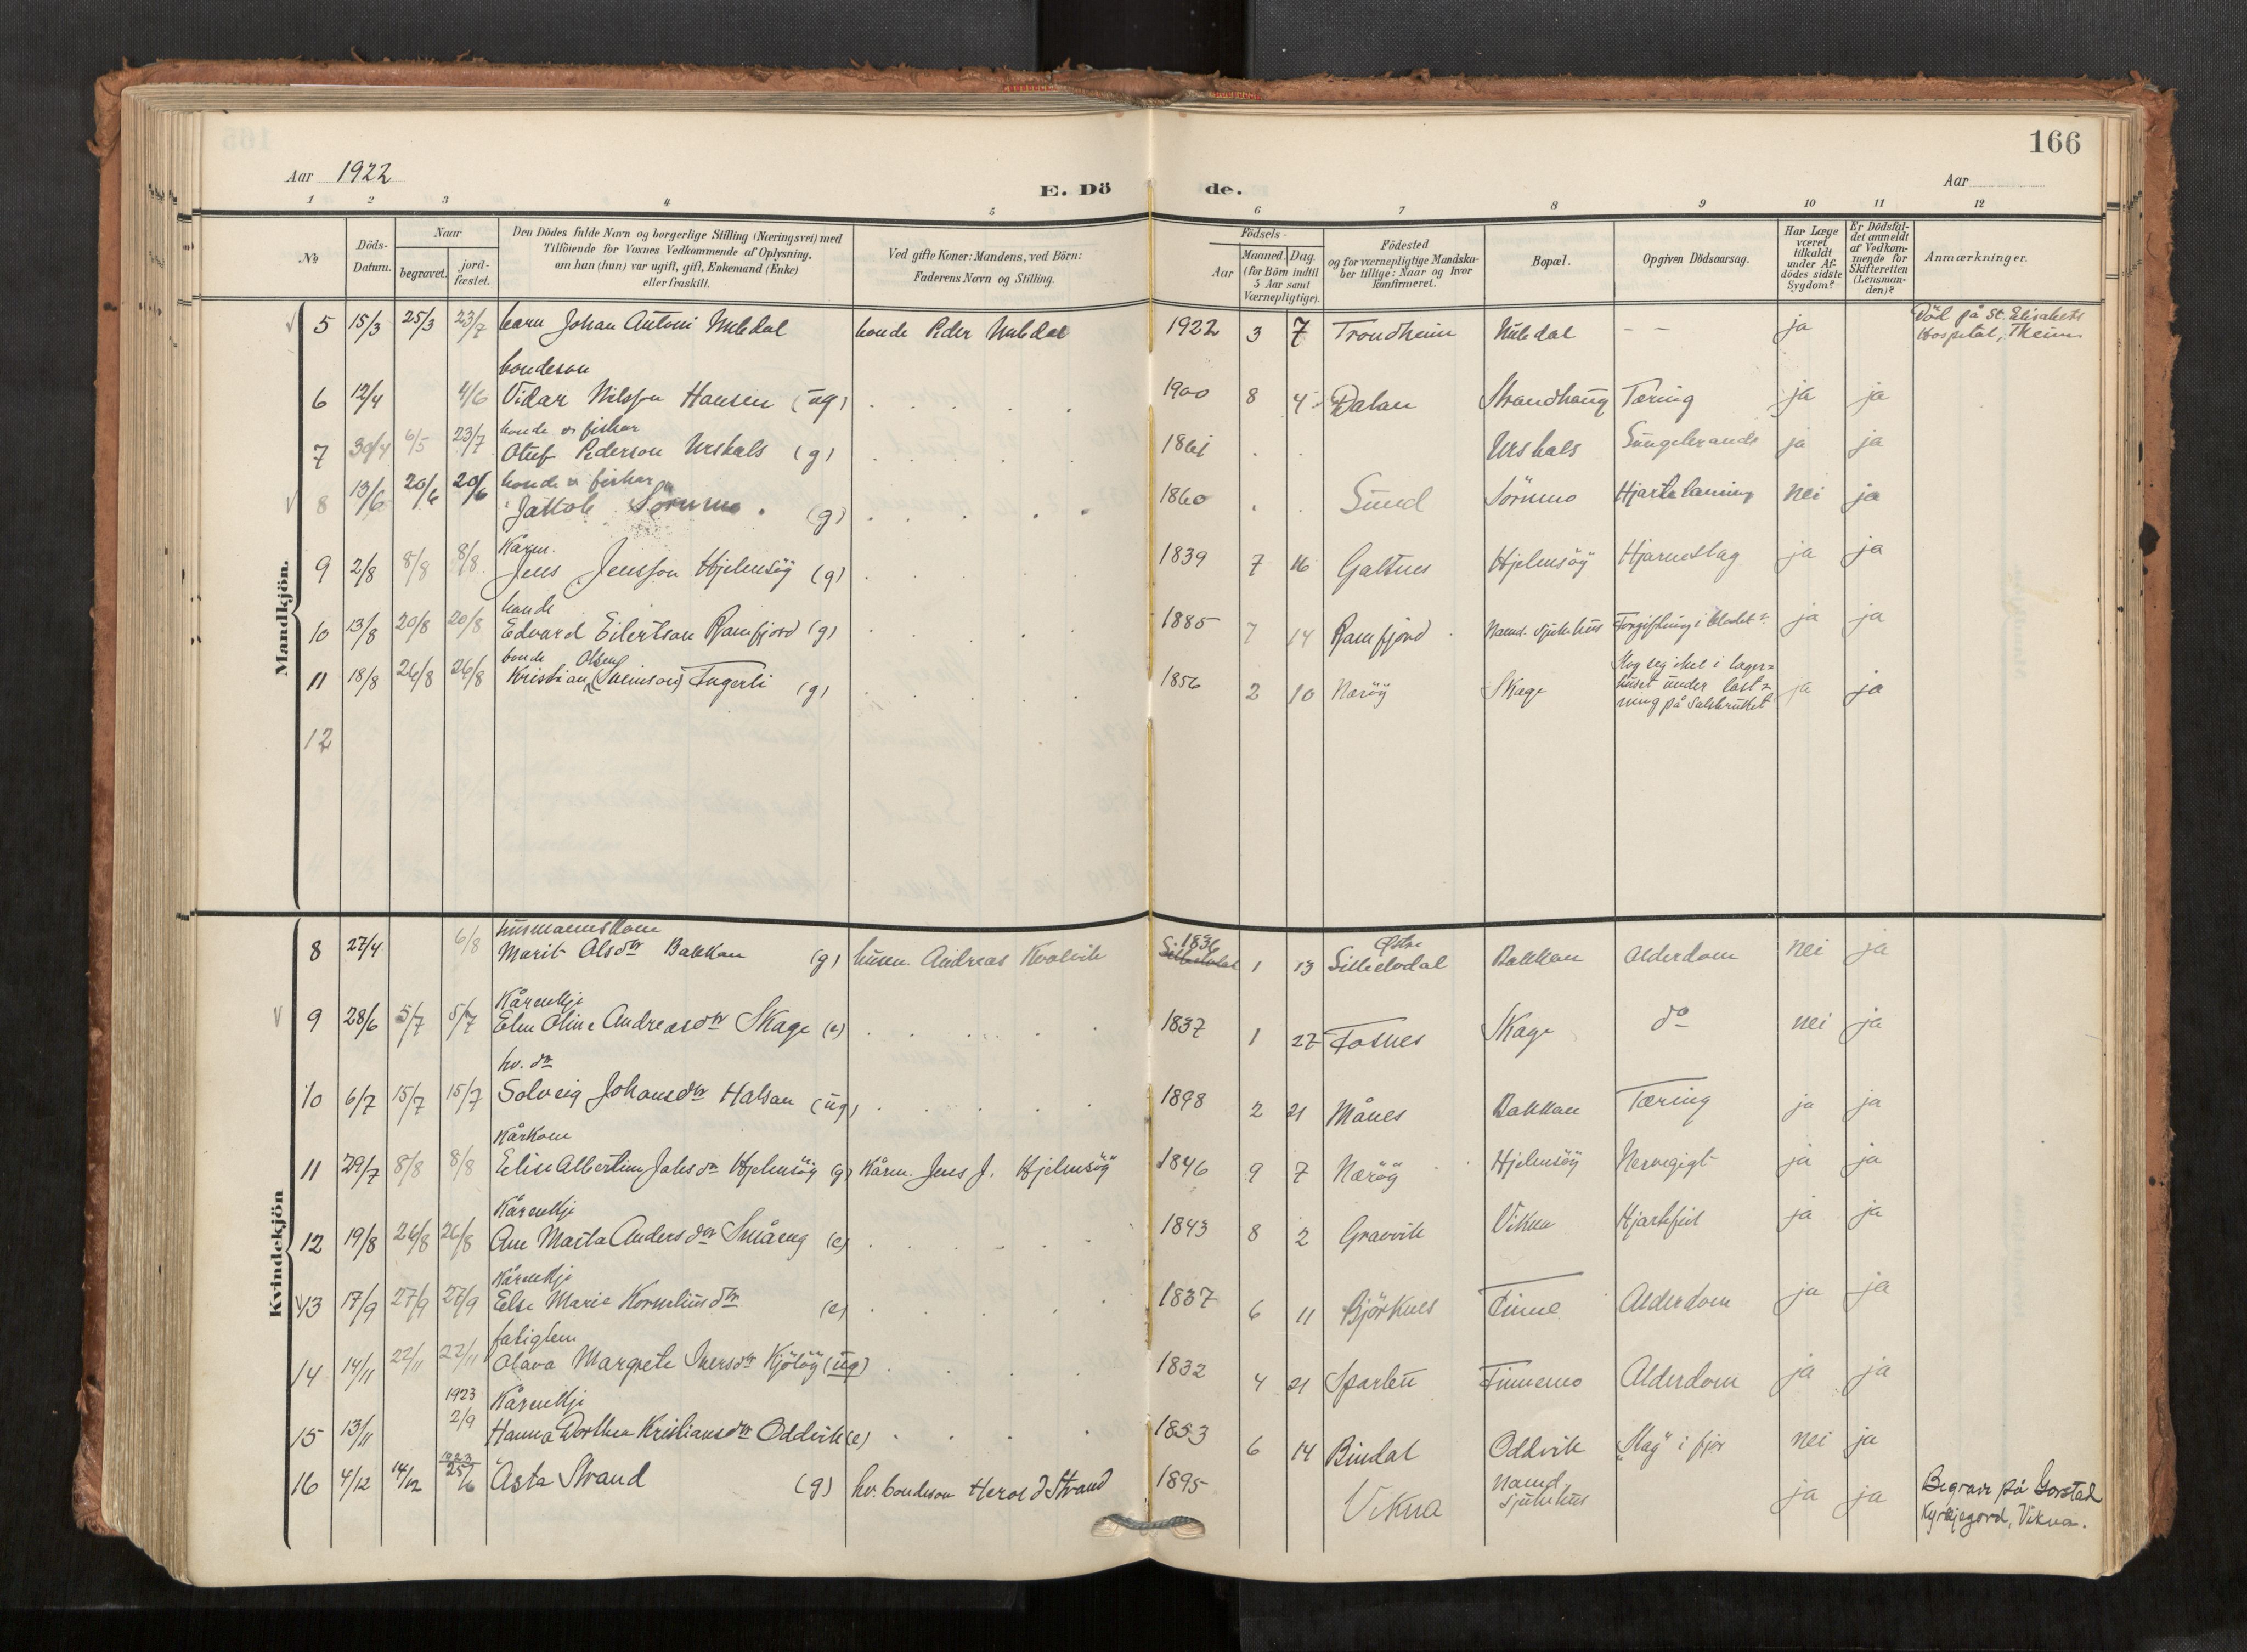 166
Aar 1922
E. Dö de.
Aar
1 2 3 4 5 6 7 8 9 10 11 12
№
Döds-Datum.
Naar
begravet.
jord-fæstet.
Den Dödes fulde Navn og borgerlige Stilling (Næringsvei) med
Tilföiende for Voxnes Vedkommende af Oplysning,
om han (hun) var ugift, gift, Enkemand (Enke)
eller fraskilt.
Ved gifte Koner: Mandens, ved Börn:
Faderens Navn og Stilling.
Födsels-
Aar
Maaned. Dag.
(for Börn indtil
5 Aar samt
Værnepligtige).
Födested
og for værnepligtige Mandska-
ber tillige: Naar og hvor
konfirmeret.
Bopæl.
Opgiven Dödsaarsag.
Har Læge
været
tilkaldt
under Af-
dödes sidste
Sygdom?
Er Dödsfal-
det anmeldt
af Vedkom-
mende for
Skifteretten
(Lensman-
den)?
Anmærkninger.
Mandkjön.
5 15/3 25/3 23/7 barn Johan Antoni bonde Peder 1922 3 7 Trondheim - - ja Död på St. Elisabets
Hospital, Theim
bondeson
6 12/4 4/6 Vidar Nilsson Hansen (ug) 1900 8 4 Dalan Strandhaug Tæring ja ja
bonde o fiskar
7 30/4 6/5 23/7 Otuf Pederson Urskals (g) 1861 Urskals ja ja
bonde o fiskar
8 13/6 20/6 20/6 Jakob Sörumo (g) 1860 Sund Sörumo Hjartelaming nei ja
Kårm.
9 2/8 8/8 8/8 Jens Jensson Hjelmsöy (g) 1839 7 16 Galtnes Hjelmsöy Hjarneslag ja ja
bonde
10 13/8 20/8 20/8 Edvard Eilertson Ramfjord (g) 1885 7 14 Ramfjord Nams. sjukehus Forgiftning i blodet ja ja
bonde Olsen
11 18/8 26/8 26/8 Kristian (Sveinson) Fugerli (g) 1856 2 10 Næröy Skage Slog seg ihel i lager=
huset under last=
ning på Salsbruket ja ja
12
Kvindekjön
husmannskone
8 27/4 6/8 Marit Olsdtr Bakkan (g) husm. Andreas Kvalvik 1836 1 13 Østre
Bakkan Alderdom nei ja
Kårenkje
9 28/6 5/7 5/7 Elen Oline Andreasdtr Skage (e) 1837 1 27 Fosnes Skage do nei ja
hv. dtr
10 6/7 15/7 15/7 Solveig Johansdtr Halsan (ug) 1898 2 21 Månes Bakkan Tæring ja ja
Kårkone
11 29/7 8/8 8/8 Elise Albertine Hjelmsöy (g) Kårm. Jens J. Hjelmsöy 1846 9 7 Næröy Hjelmsöy Nervegigt ja ja
Kårenkje
12 19/8 26/8 26/8 Ane Marta Andersdtr Småeng (e) 1843 8 2 Gravvik Vikna Hjartefeil ja ja
Kårenkje
13 17/9 27/9 27/9 Else Marie Korneliusdtr (e) 1837 6 11 Björknes Finne Alderdom ja ja
fatiglem
14 14/11 22/11 22/11 Olava Margrete Iversdtr Kjölöy (ug) 1832 4 21 Sparbu Finnemo Alderdom ja ja
1923 Kårenkje
15 13/11 2/9 Hanna Dorthea Kristiansdtr Oddvik (e) 1853 6 14 Bindal Oddvik "Slag" i fjor nei ja
1923
16 4/12 14/12 25/6 Asta Strand (g) hv. bondeson Herold Strand 1895 Vikna Namd.
sjukehus ja ja Begrave på Garstad
Kyrkjegard, Vikna.